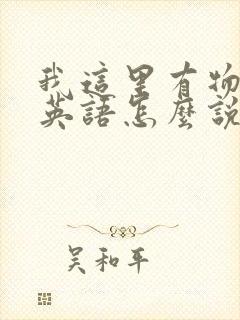 我這里有物
英語怎麼說
吴和平